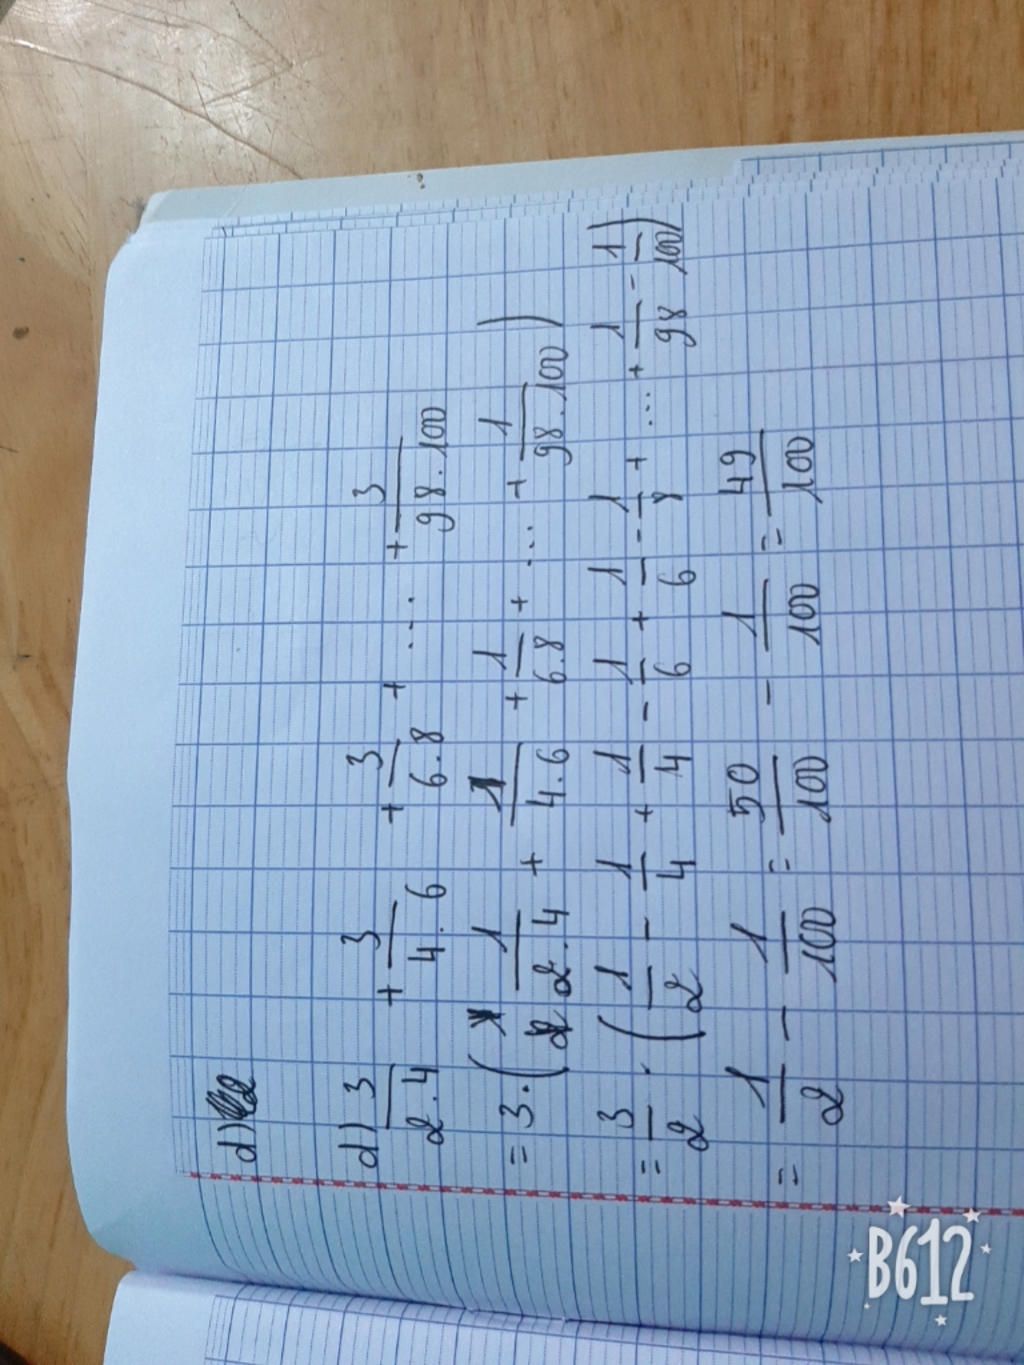 d)
d) 3/2.4 + 3/4.6 + 3/6.8 + ... + 3/98.100
= 3.(1/2.4 + 1/4.6 + 1/6.8 + ... + 1/98.100)
= 3/2 . (1/2 - 1/4 + 1/4 - 1/6 + 1/6 - 1/8 + ... + 1/98 - 1/100)
= 1/2 - 1/100 = 50/100 - 1/100 = 49/100
B612